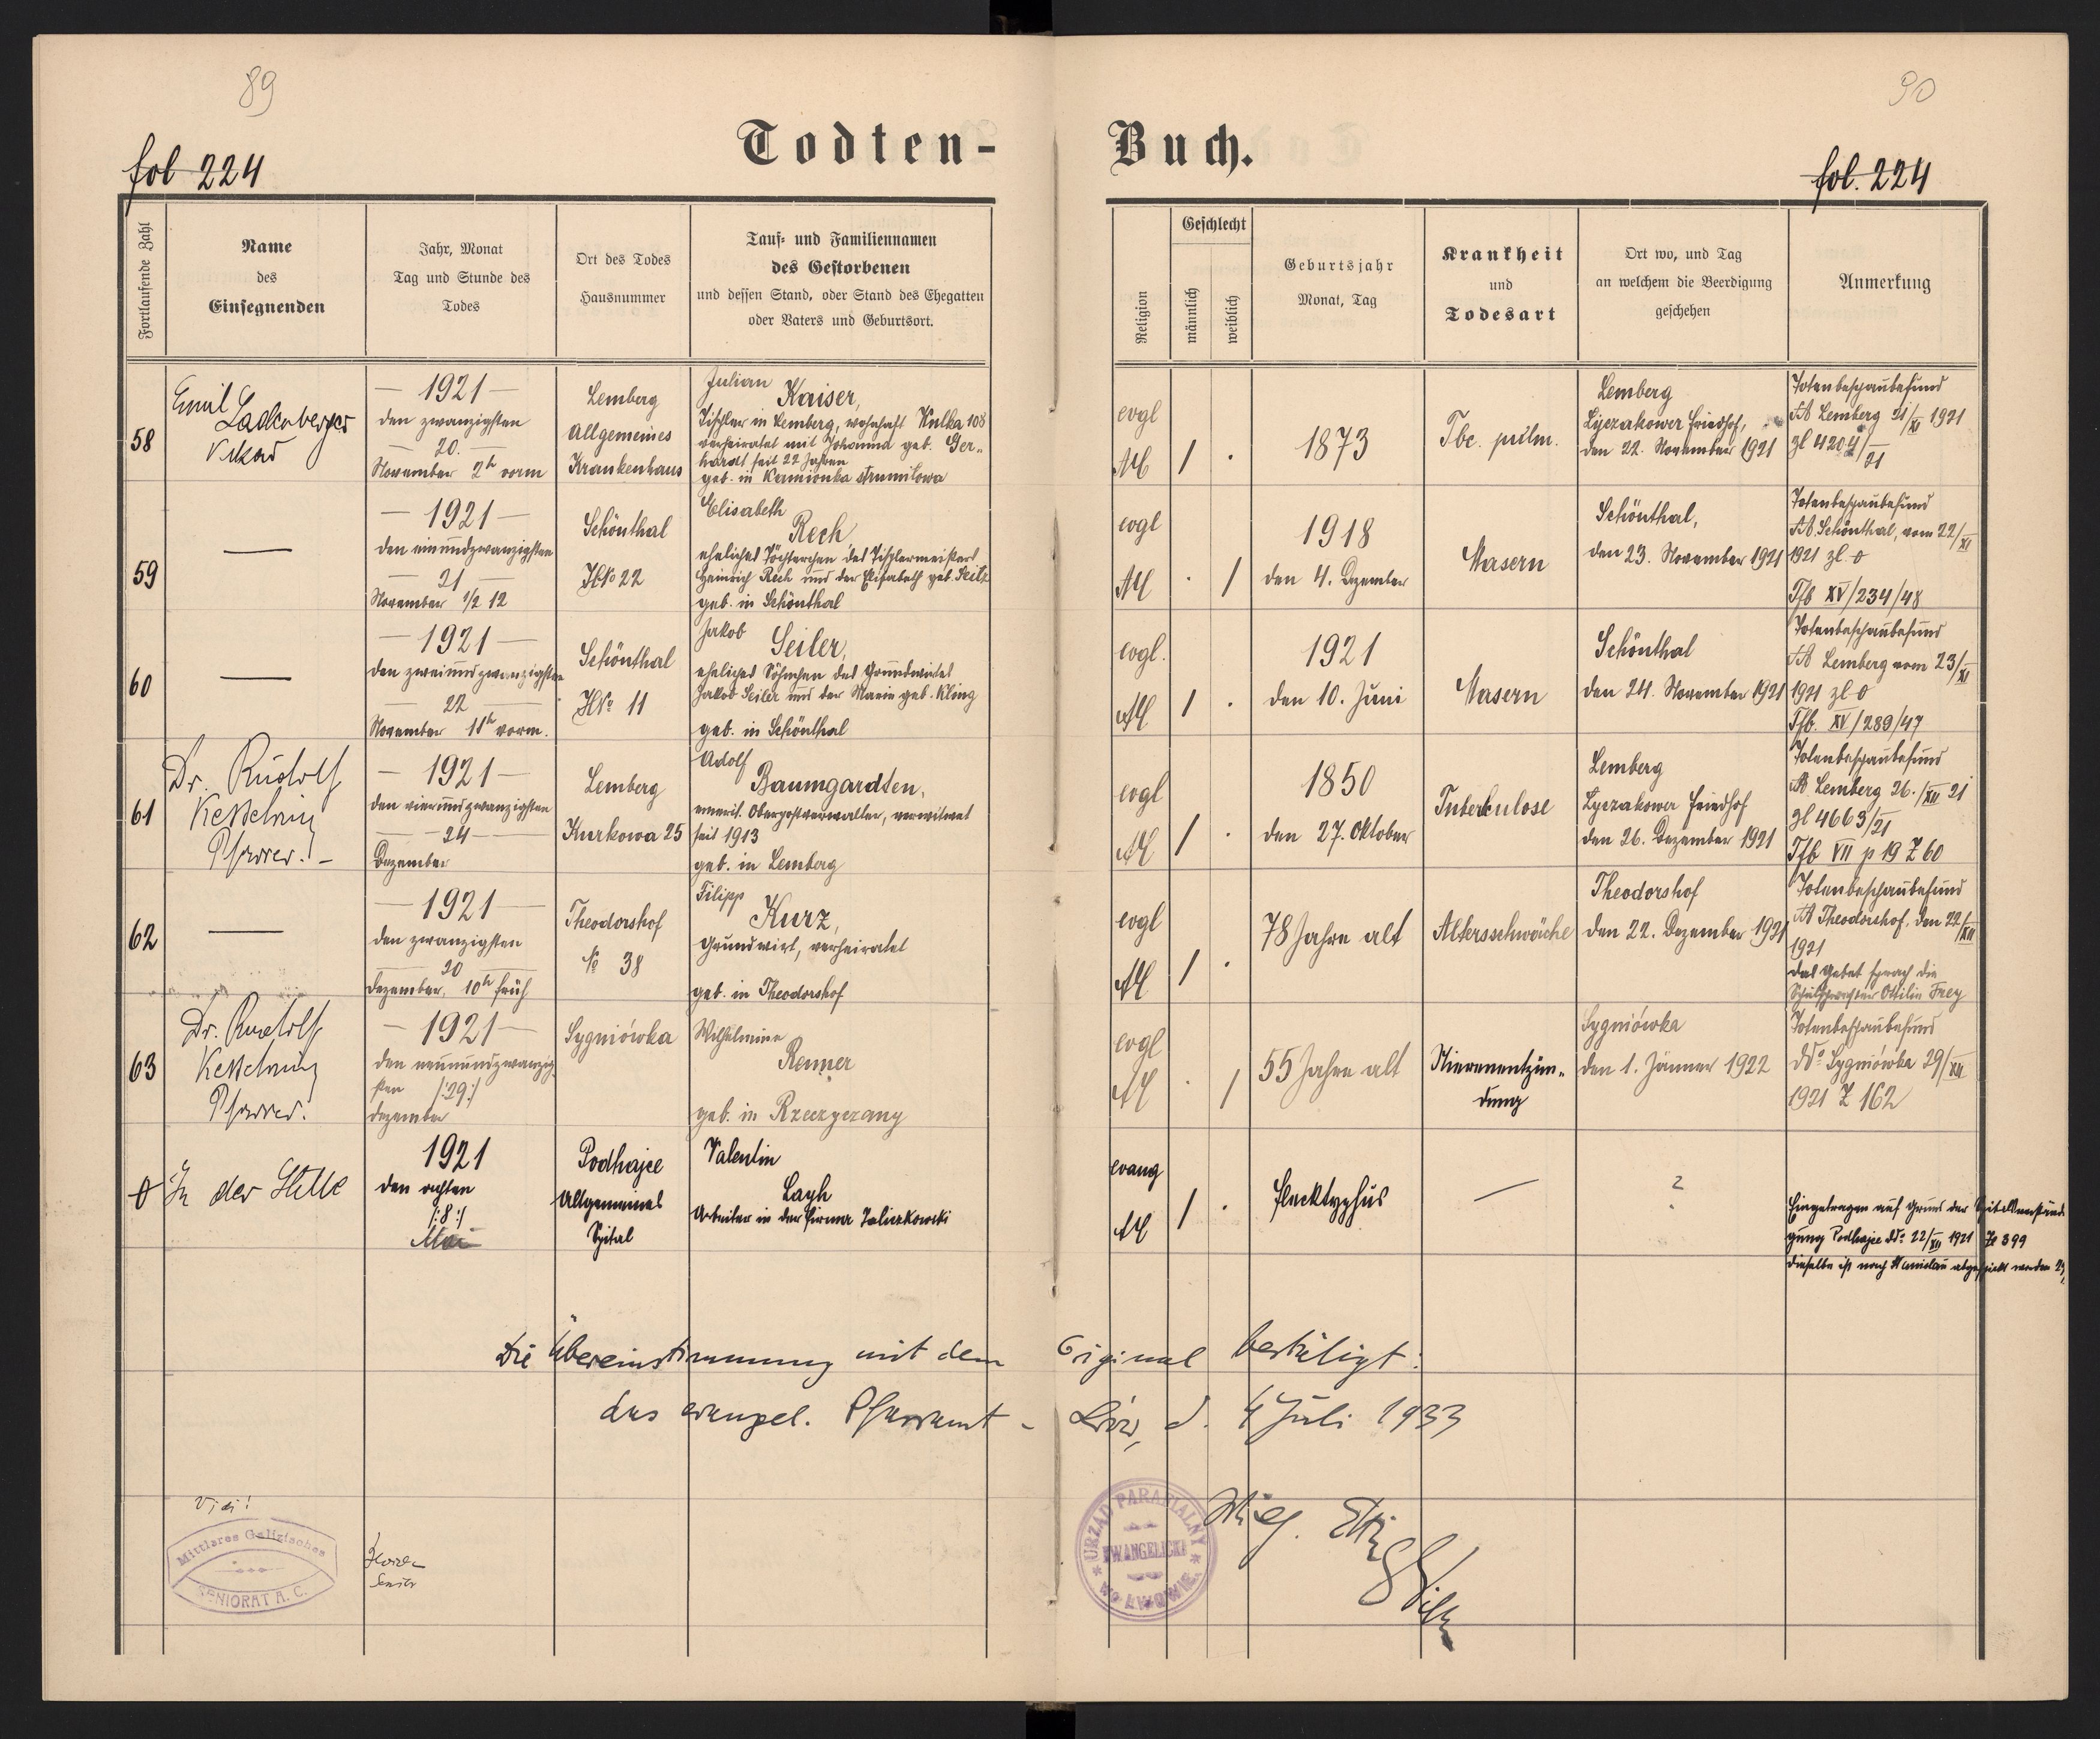 89
90
Todten-
Buch.
fol 224
fol. 224
Fortlaufende Zahl
Name
des
Einsegnenden
Jahr, Monat
Tag und Stunde des
Todes
Ort des Todes
Hausnummer
Tauf- und Familiennamen
des Gestorbenen
und dessen Stand, oder Stand des Ehegatten
oder Vaters und Geburtsort.
Religion
Geschlecht
männlich
weiblich
Geburtsjahr
Monat, Tag
Krankheit
und
Todesart
Ort wo, und Tag
an welchem die Beerdigung
geschehen
Anmerkung
58
Emil
Ladenberger
Vikar
— 1921 —
den zwanzigsten
— 20. —
November 2h vorm
Lemberg
Allgemeines
Krankenhaus
Julian
Kaiser,
Tischler in Lemberg, wohnhaft Kulka 108
verheiratet mit Johanna geb. Ger-
hardt seit 22 Jahren
geb. in Kamionka strumilowa
evgl
AC
/ .
1873
Tbc. pulm.
Lemberg
Lyczakower Friedhof,
den 22. November 1921
Totenbeschaubefund
Lemberg 21/XI 1921
zl 4204/21
59
—
— 1921 —
den einundzwanzigsten
— 21 —
November 1/2 12
Schönthal
HNo 22
Elisabeth
Rech
eheliches Töchterchen des Tischlermeisters
Heinrich Rech und der Elisabeth geb. Seilz
geb. in Schönthal
evgl
AC
. /
1918
den 4. Dezember
Masern
Schönthal,
den 23. November 1921
Totenbeschaubefund
Schönthal, vom 22/XI
1921 zl. 0
Tfb XV/234/48
60
—
— 1921 —
den zweiundzwanzigsten
— 22 —
November 11h vorm.
Schönthal
HNo 11
Jakob
Seiler,
eheliches Söhnchen des Grundwirtes
Jakob Seiler und der Maria geb. Kling
geb. in Schönthal
evgl.
AC
/ .
1921
den 10. Juni
Masern
Schönthal
den 24. November 1921
Totenbeschaubefund
Lemberg vom 23/XI
1921 zl 0
Tfb. XV/289/47
61
Dr. Rudolf
Kesselring
Pfarrer. -
— 1921 —
den vierundzwanzigsten
— 24 —
Dezember
Lemberg
Kurkowa 25
Adolf
Baumgardten,
emerit. Oberpostverwalter, verwitwet
seit 1913
geb. in Lemberg
evgl
AC
/ .
1850
den 27. Oktober
Tuberkulose
Lemberg
Lyczakower Friedhof
den 26. Dezember 1921
Totenbeschaubefund
Lemberg 26./XII 21
zl 4663/21
Tfb VII p 19 Z 60
62
—
— 1921 —
den zwanzigsten
— 20 —
Dezember. 10h früh
Theodorshof
No 38
Filipp
Kurz,
Grundwirt, verheiratet
geb. in Theodorshof
evgl
AC
/ .
78 Jahre alt
Altersschwäche
Theodorshof
den 22. Dezember 1921
Totenbeschaubefund
Theodorshof, den 22/XII
1921
das Gebet sprach die
Ottilie Frey
63
Dr. Rudolf
Kesselring
Pfarrer.
— 1921 —
den neunundzwanzig-
sten /:29:/
Dezember
Sygniówka
Wilhelmine
Renner
geb. in Rzeczyczany
evgl
AC
. /
55 Jahre alt
Nierenentzün-
dung
Sygniówka
den 1. Jänner 1922
Totenbeschaubefund
ddo Sygniówka 29/XII
1921 Z 162
0
In der Stille
1921
den achten
/:8:/
Mai
Podhajce
Allgemeines
Spital
Valentin
Layh
Arbeiter in der Firma
evang
AC
/ .
Flecktyphus
—
?
Eingetragen auf Grund der Spitalsverständi-
gung Podhajce ddo 22/XII 1921 Zl 399
dieselbe ist nach Stanislau abgeschickt worden
Die Übereinstimmung mit dem Original bestätigt:
das evangel. Pfarramt - Lwów, d. 4 Juli 1933
Vidi!
Mittleres Galizisches
SENIORAT A. C.
Senior
URZĄD PARAFIALNY
EWANGELICKI
WE LWOWIE